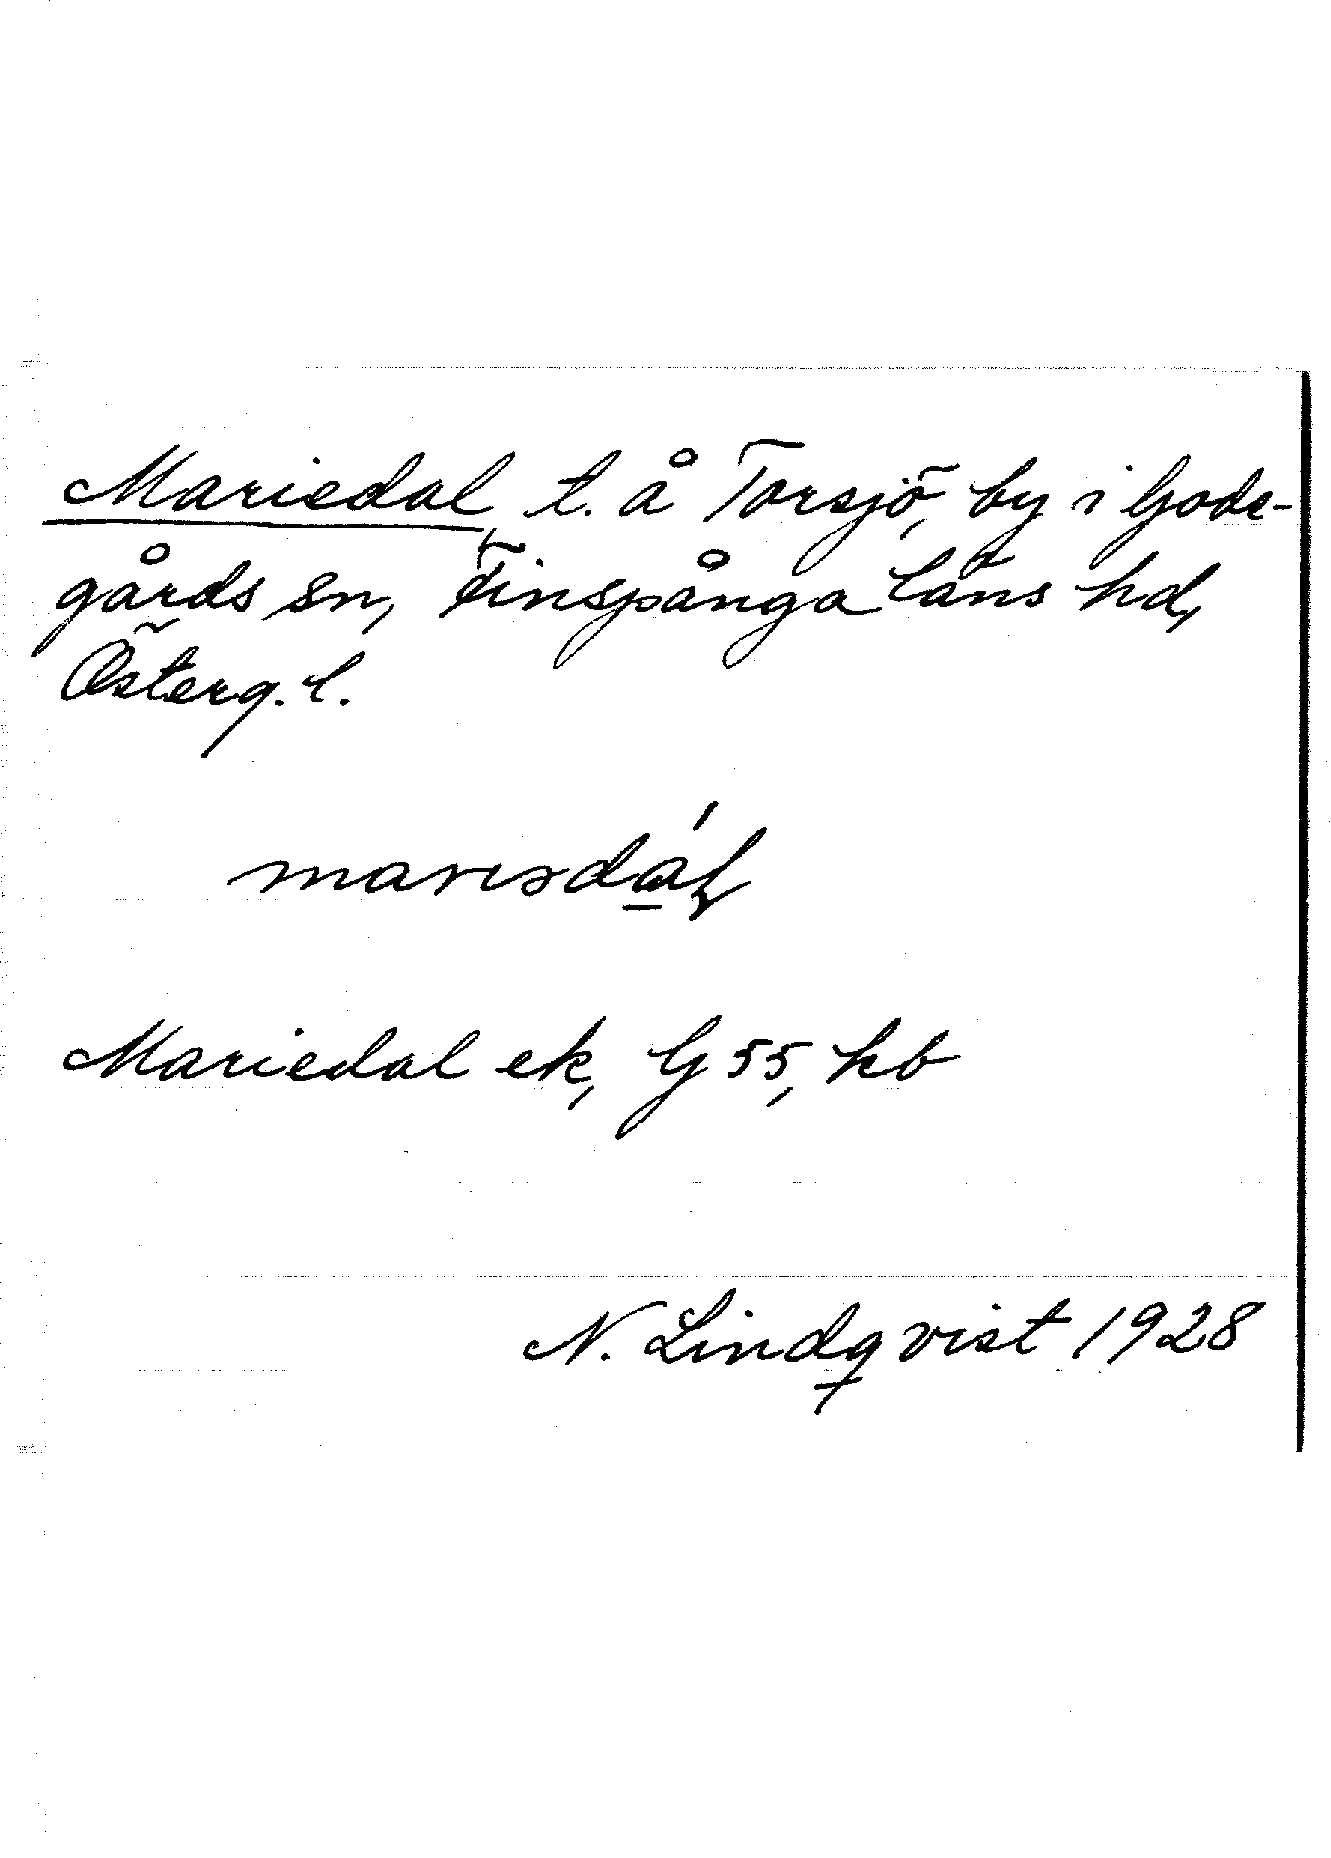 Mariedal, t. å Torsjö, by i Gode-
gårds sn, Finspånga läns hd,
Österg. l.
marɪəda̲´ɬ
Mariedal ek, G 55, kb
N. Lindqvist 1928